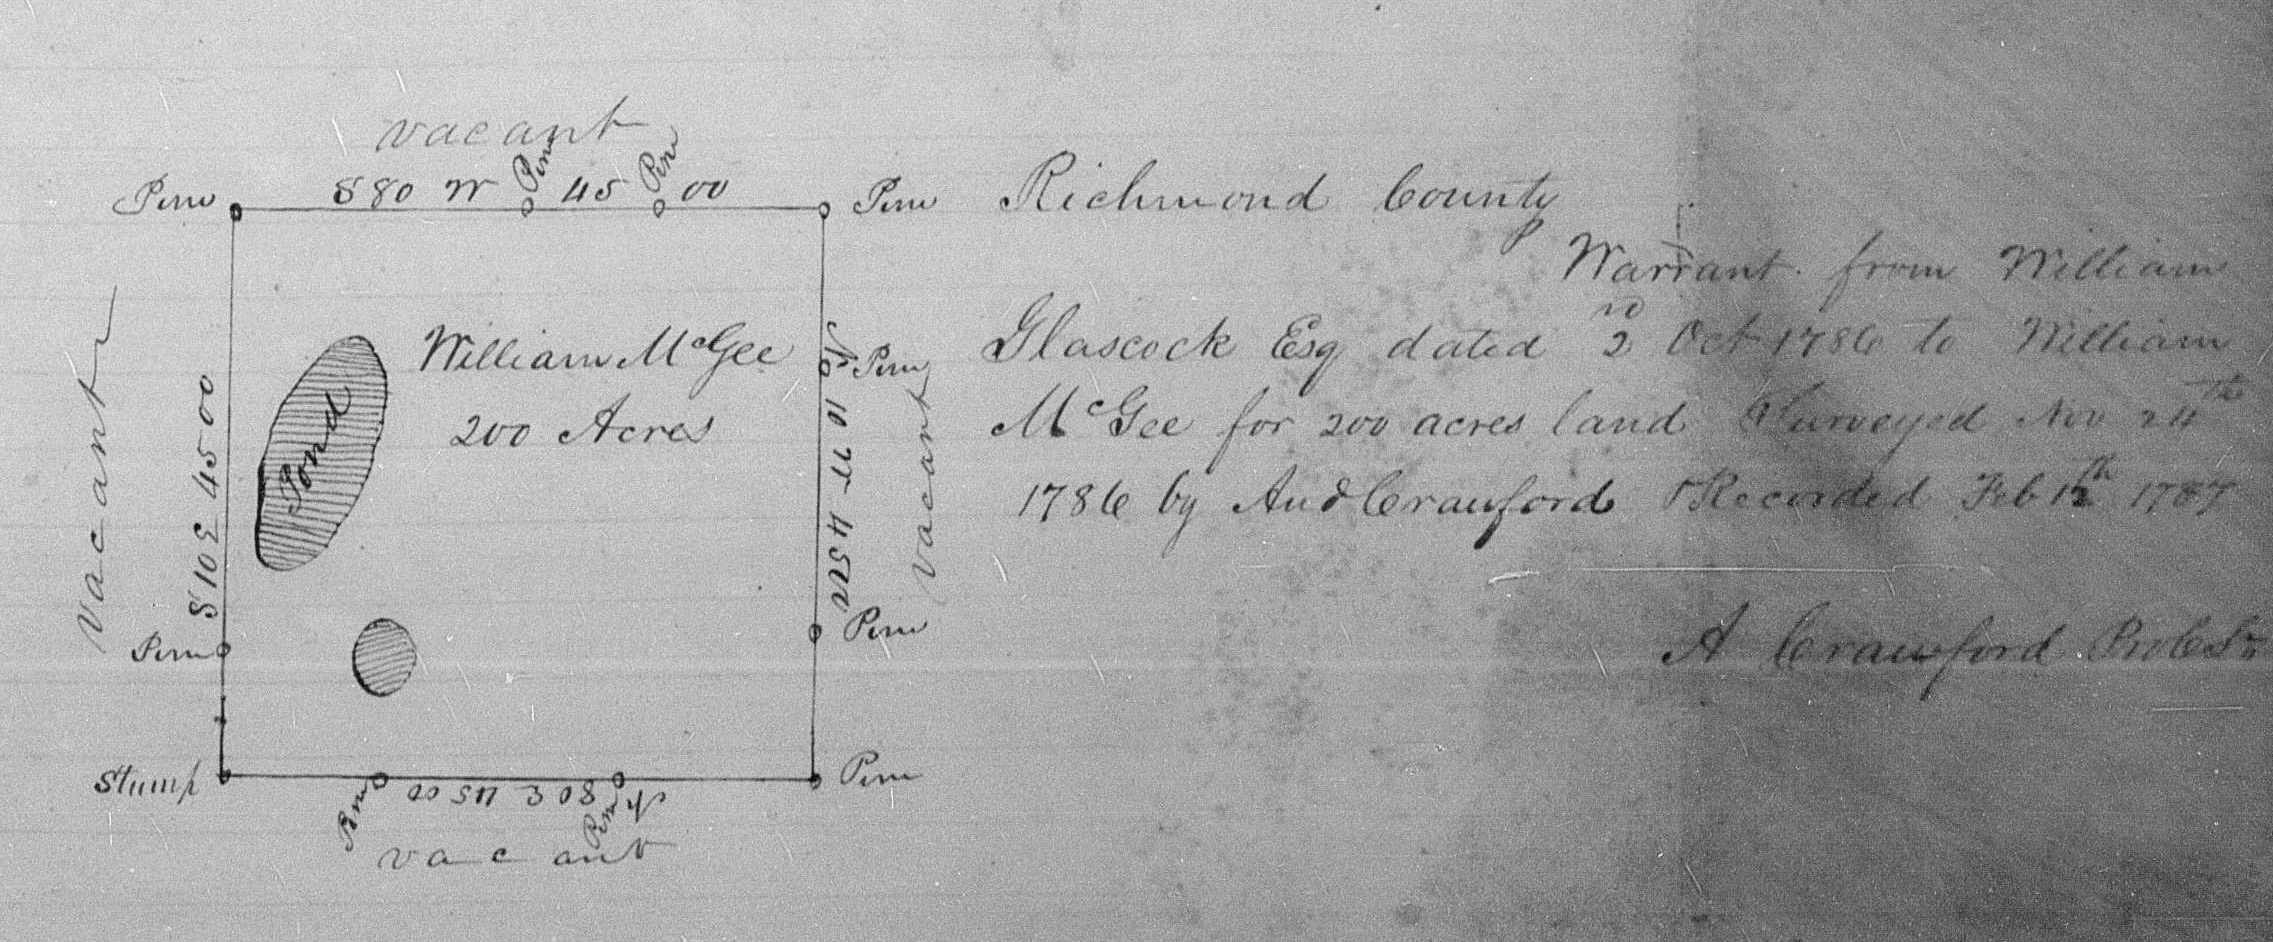 vacant
Pine S 80 W Pine 45 Pine 00 Pine
Vacant
S 10 E 45 00
Pine
Stump
William McGee
200 Acres
Pond
N 10 W 45 00
Pine
vacant
Pine
Pine
Pine N 80 E 45 00 Pine
vacant
Richmond County
Warrant from William
Glascock Esq dated 2nd Oct 1786 to William
McGee for 200 acres land Surveyed Nov 24th
1786 by And Crawford Recorded Feb 12th 1787
A Crawford